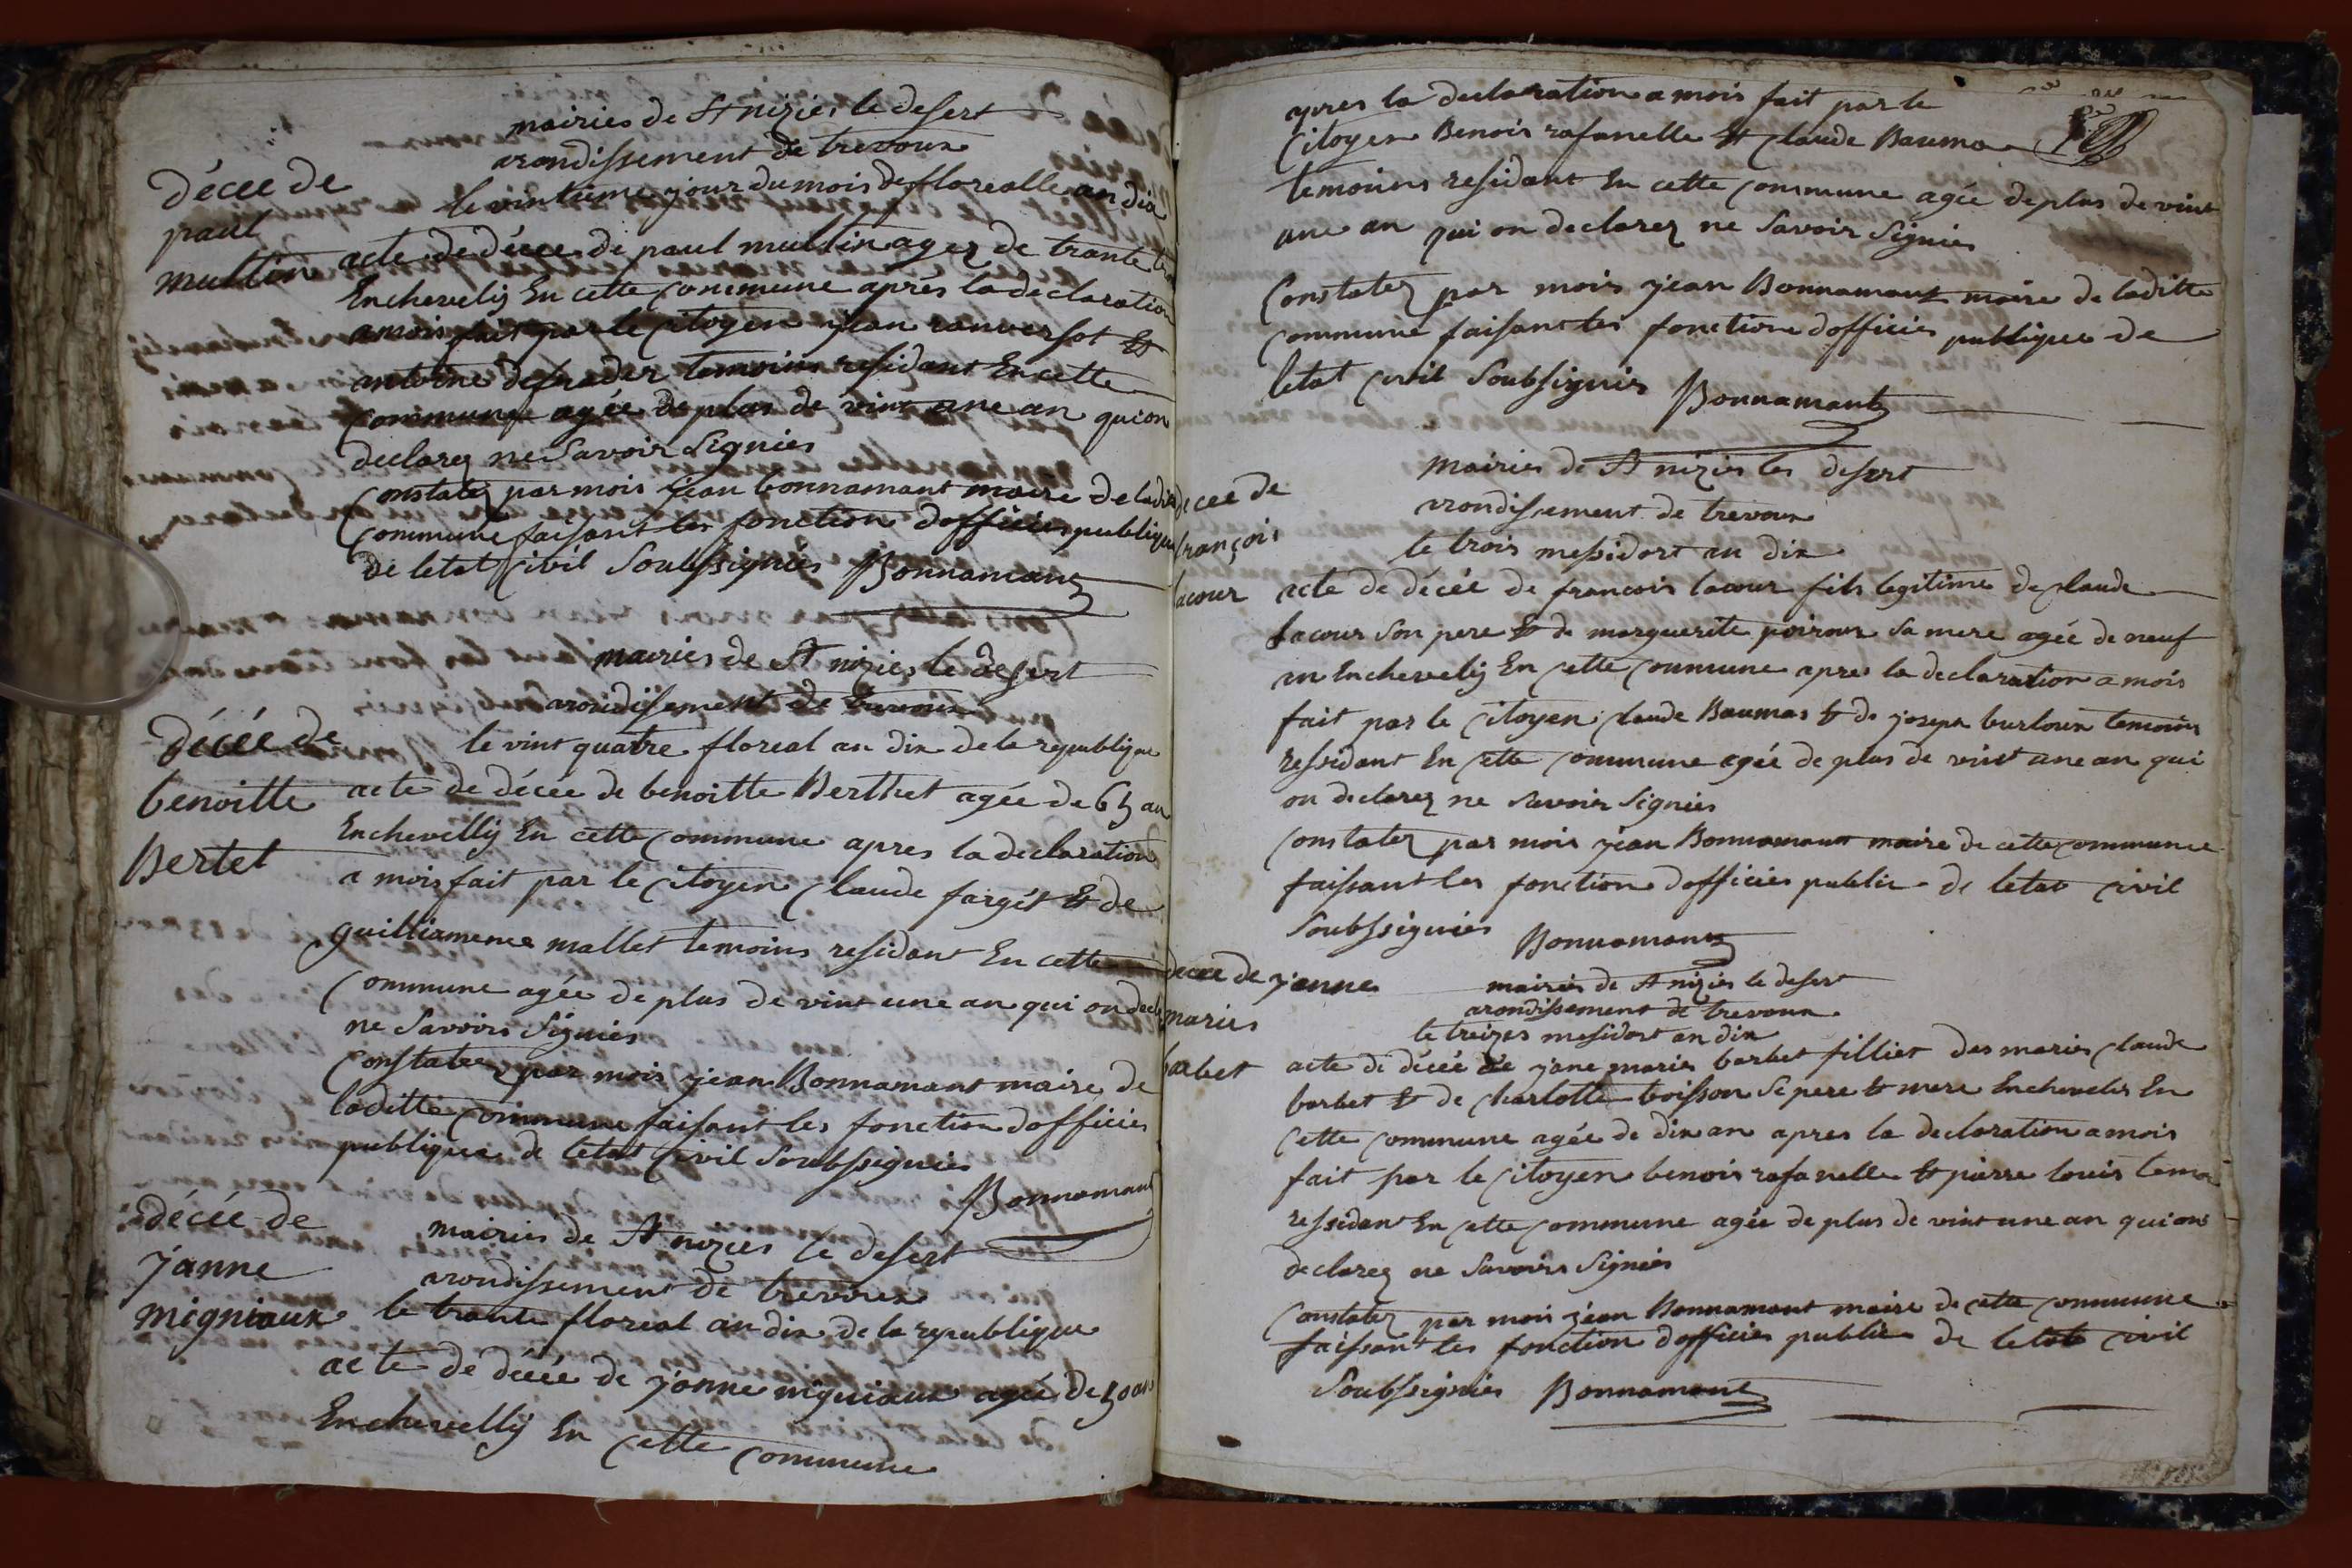 mairies de St nizies le desert
arondissement de trevoux
le vintieme jour du mois de florealle an dix
décee de
paul
mullin
acte de décee de paul mullin agez de trante
Enchevelij En cette commune aprés la declaration
a mois fait par le Citoyen jean ranversot et
antoine temoins residant En cette
commune agée de plus de vint une an qui on
declarez ne Savoir Signies
Constatez par mois jean bonnamant maire de ladite
commune faisant les fonction dofficies publique
de letat Civil Soubssigniés Bonnamant
mairies de St nizies le desert
arondissement de trevoux
décée de
benoitte
Bertet
le vint quatre floreal an dix de la republique
acte de décée de benoitte Berthet agée de 65 an
Enchevellij En cette commune apres la declaration
a mois fait par le Citoyen Claude fargét et de
guilliamence mallet temoins residant En cette
Commune agée de plus de vint une an qui on decle
ne Savoirs Signies
Constatez par mois jean Bonnamant maire de
laditte commune faisant les fonction dofficies
publique de letat Civil Soubssignies
Bonnamant
décée de
janne
migniaux
mairies de St nizies le desert
arondissement de trevoux
le trante floreal an dix de la republique
acte de décée de janne migniaux agée de 50 ans
Enchevellij En cette commune
apres la declaration a mois fait par le
Citoyen Benois rafanelle et Claude Bauma
temoins residant En cette commune agée de plus de vint
une an qui on declarez ne Savoir Signies
Constatez par mois jean Bonnamant maire de laditte
commune faisant les fonction dofficies publique de
letat Civil Soubsignies Bonnamant
mairies de St nizies les desert
arondissement de trevoux
le trois messidort an dix
decee de
françois
lacour
acte de décée de francois lacour fils legitime de Claude
Lacour Son pere et de marguerite poiroux Sa mere agée de neuf
an Enchevelij En cette commune apres la declaration a mois
fait par le Citoyen Claude Baumas et de joseph burloux temoins
ressidant En cette commune agée de plus de vint une an qui
on declarez ne Savoir Signies
Constatez par mois jean Bonnamant maire de cette commune
faissant les fonction dofficies public de letat Civil
Soubssignies Bonnamant
decee de janne
maries
barbet
mairies de St nizies le desert
arondissement de trevoux
le treizes mesidort an dix
acte de décée de jane maries barbet filliet des maries Claude
barbet et de charlotte boisson Se pere et mere Enchevelis En
Cette commune agée de dix an apres la declaration a mois
fait par le Citoyen benois rafanelle et pierre louis temoi
ressidant En cette commune agée de plus de vint une an qui ons
declarez ne Savoirs Signies
Constatez par mois jean Bonnamant maire de cette commune
faissant les fonction dofficies public de letat civil
Soubssignies Bonnamant